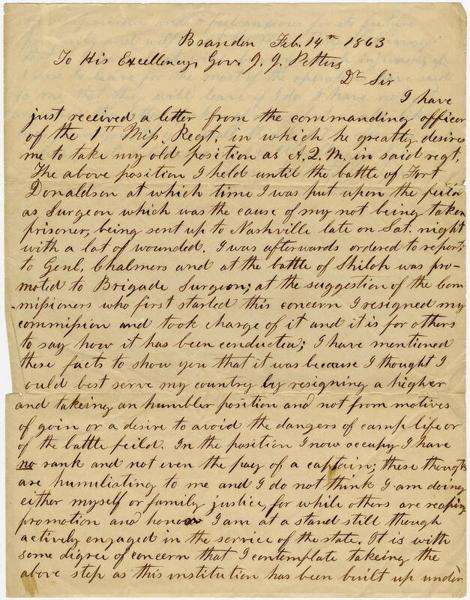 Brandon Feb. 14th 1863
To His Excellency Gov. J. J. Pettus
Dr Sir
I have
just received a letter from the commanding officer
of the 1st Miss. Regt. in which he greatly desires
me to take my old position as A. Q. M. in said regt.
The above position I held until the battle of Fort
Donaldson at which time I was put upon the
as Surgeon which was the cause of my not being taken
prisoner, being sent up to Nashville late on Sat. night
with a lot of wounded. I was afterwards ordered to report
to Genl. Chalmers and at the battle of Shiloh was pro-
moted to Brigade Surgeon; at the suggestion of the Com-
missioners who first started this concern I resigned my
commission and took charge of it and it is for others
to say how it has been conducted; I have mentioned
these facts to show you that it was because I thought I
ould best serve my country by resigning a higher
and takeing an humbler position and not from motives
of gain or a desire to avoid the dangers of camp life or
of the battle feild. In the position I now occupy I have
no rank and not even the pay of a captain; these though
are humiliating to me and I do not think I am doing
either myself or family justice, for while others are reaping
promotion and honor I am at a stand still though
actively engaged in the service of the state. It is with
some degree of concern that I contemplate takeing the
above step as this institution has been built up under